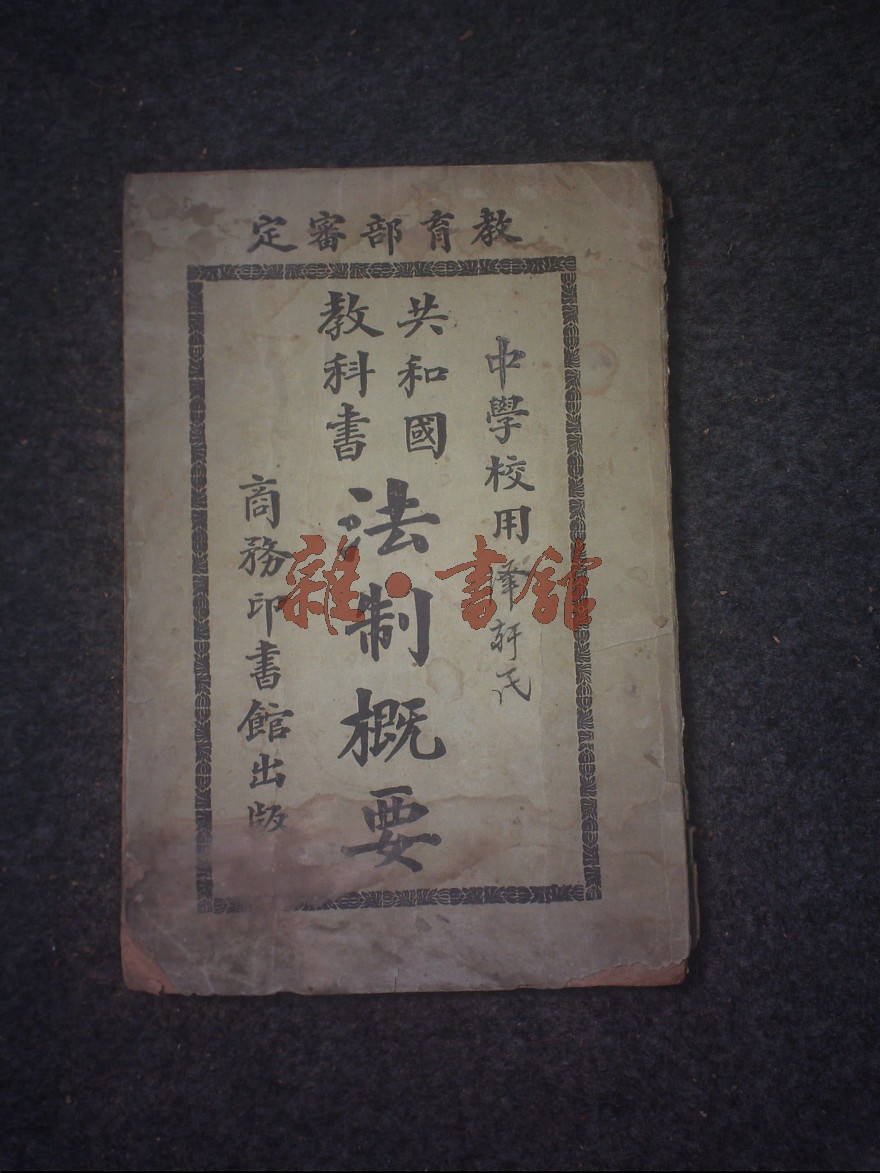 教育部審定
中學校用
共和國
教科書
法制概要
商務印書館出版
雜·書館